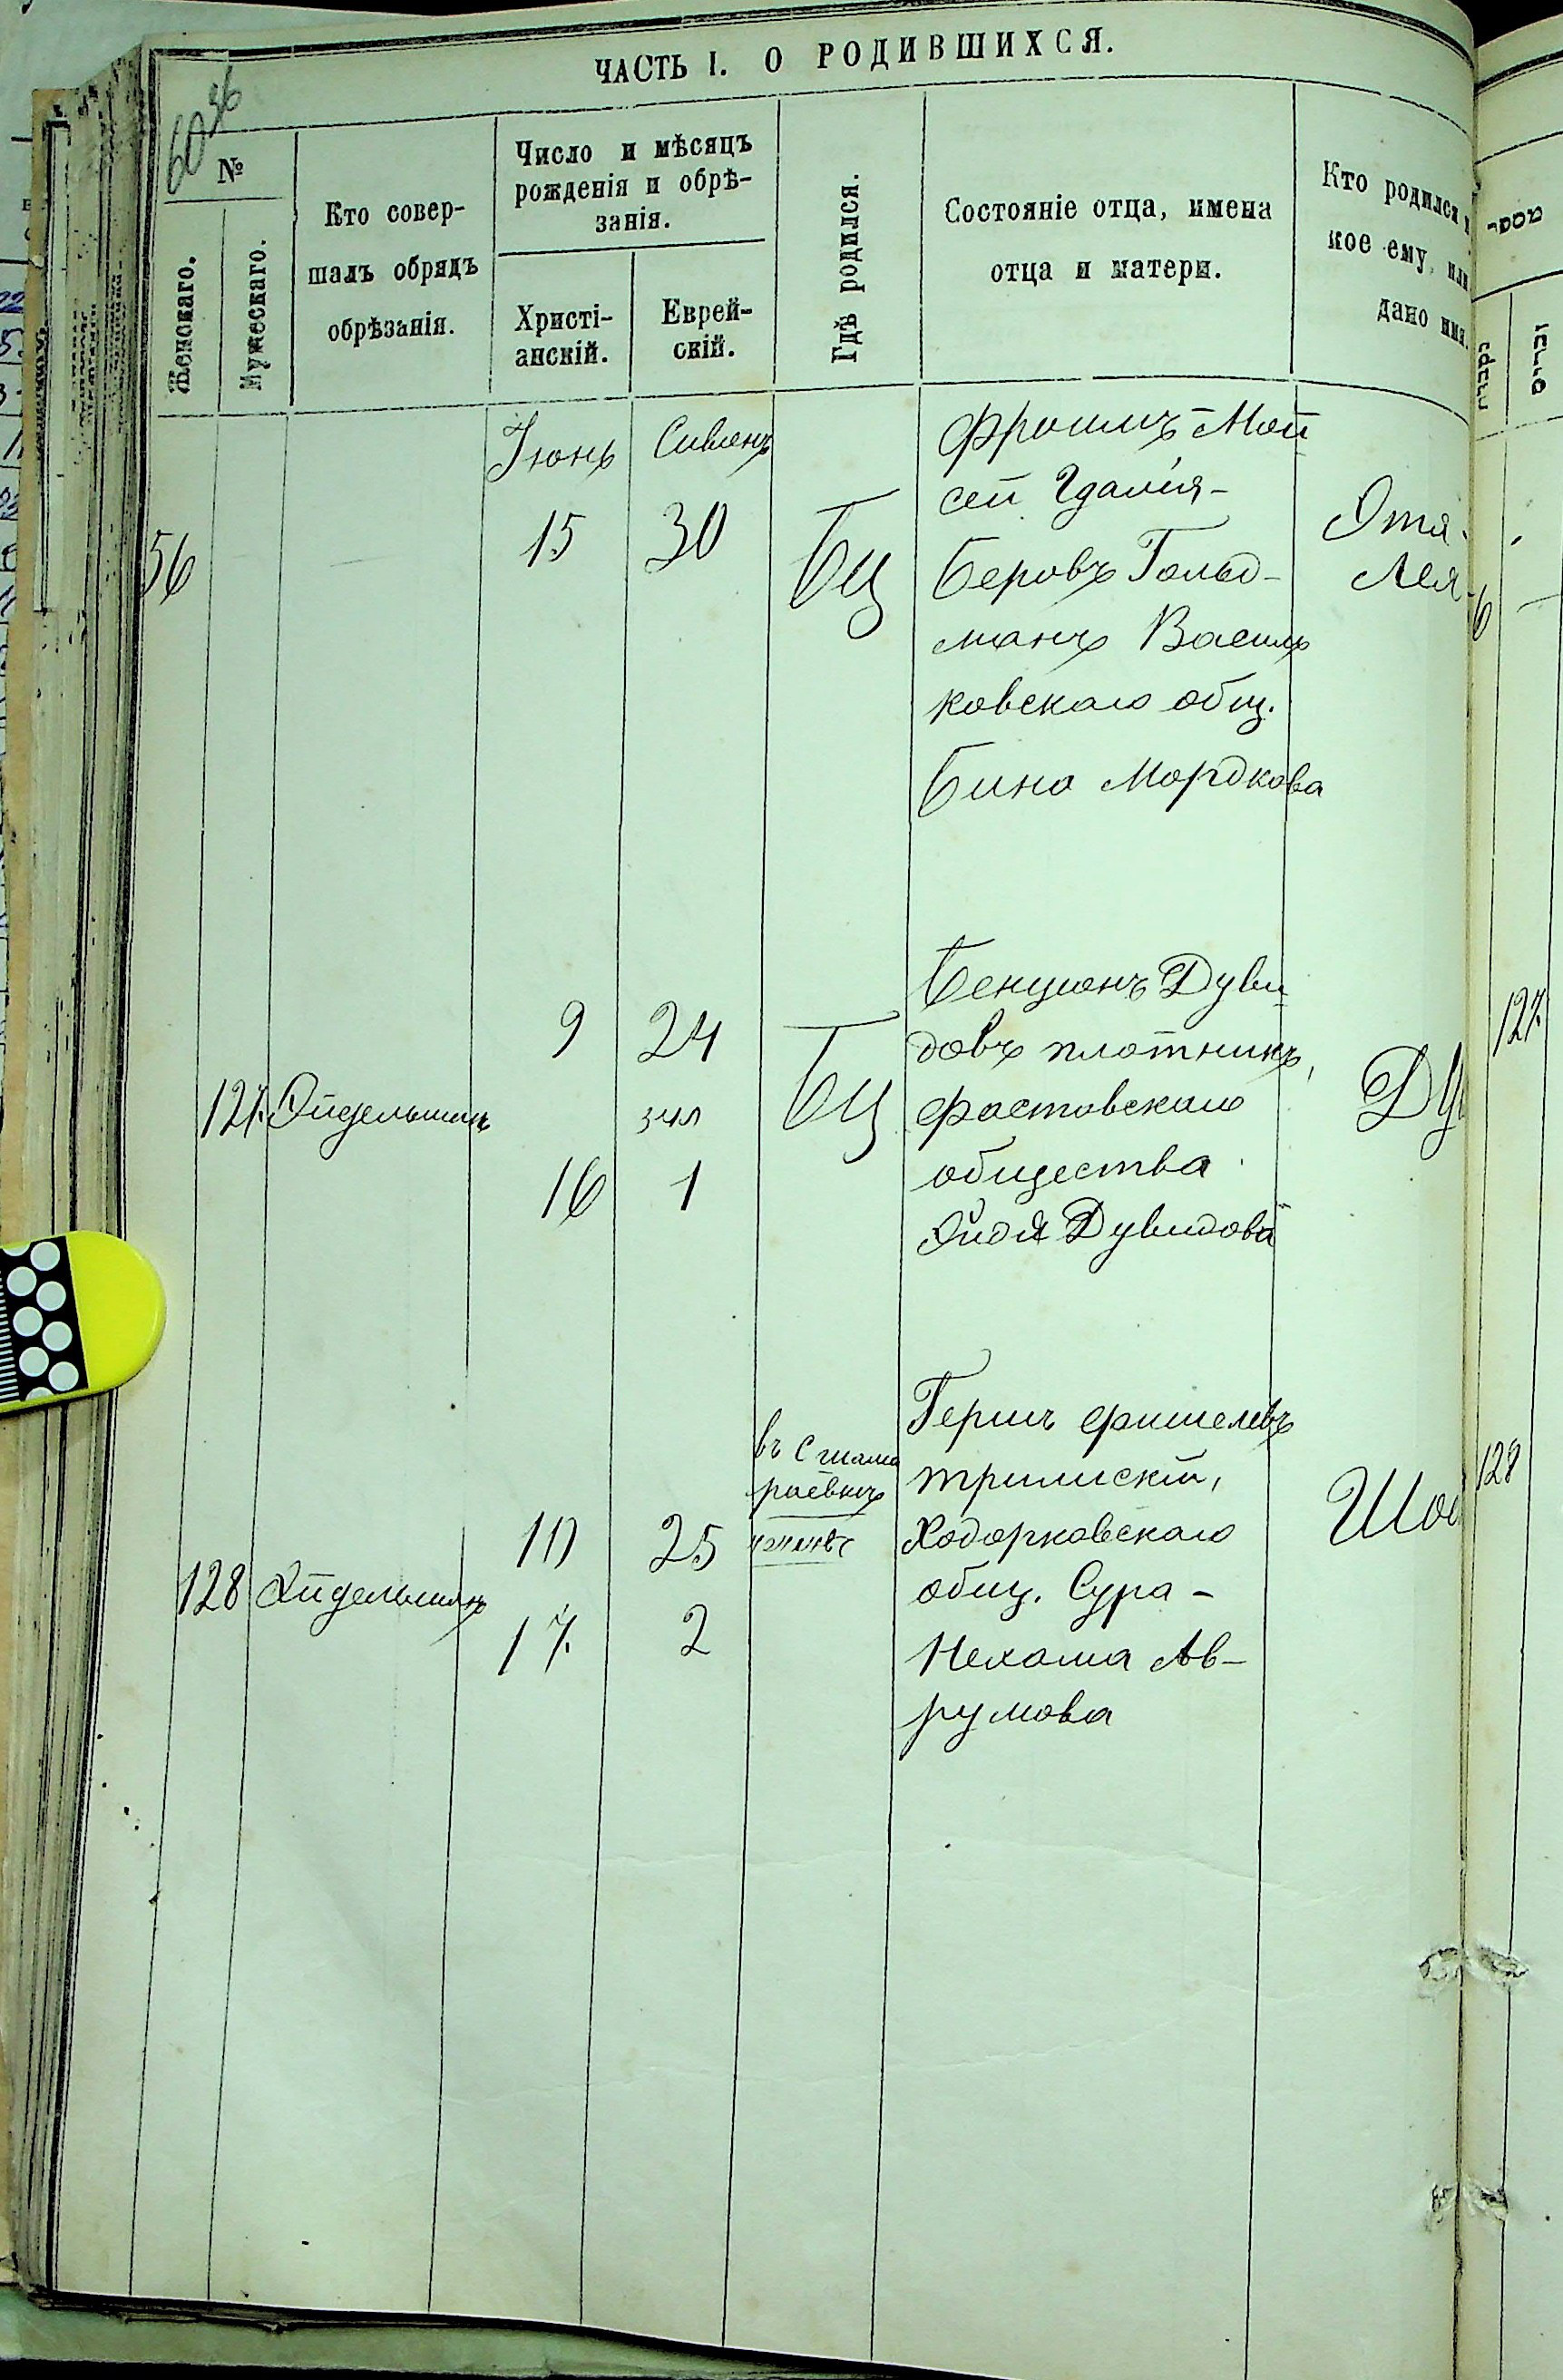 ЧАСТЬ I. О РОДИВШИХСЯ.
60 56
№
Женскаго.
Мужескаго.
Кто совер-
шалъ обрядъ
обрѣзанія.
Число и мѣсяцъ
рожденія и обрѣ-
занія.
Христі-
анскій.
Еврей-
скій.
Гдѣ родился.
Состояніе отца, имена
отца и матери.
Кто родился
кое ему, или
дано имя.
56
Іюнь
15
Сивенъ
30
БЦ
Фроимъ-Мой
сей Гдалія-
Беровъ Гольд-
манъ Василь
ковскаго общ.
Бина Мордкова
Эта-
Лея
127. Эйдельманъ
9
24
16
1
БЦ
Бенционъ Дуви
довъ плотникъ,
Фастовскаго
общества
Эйдя Дувидова
Ду
127.
128 Эйдельманъ
10
25
17.
2
въ с
Гершъ Фишелевъ
трилискій,
Ходорковскаго
общ. Сура-
Нехама Ав-
румова
128